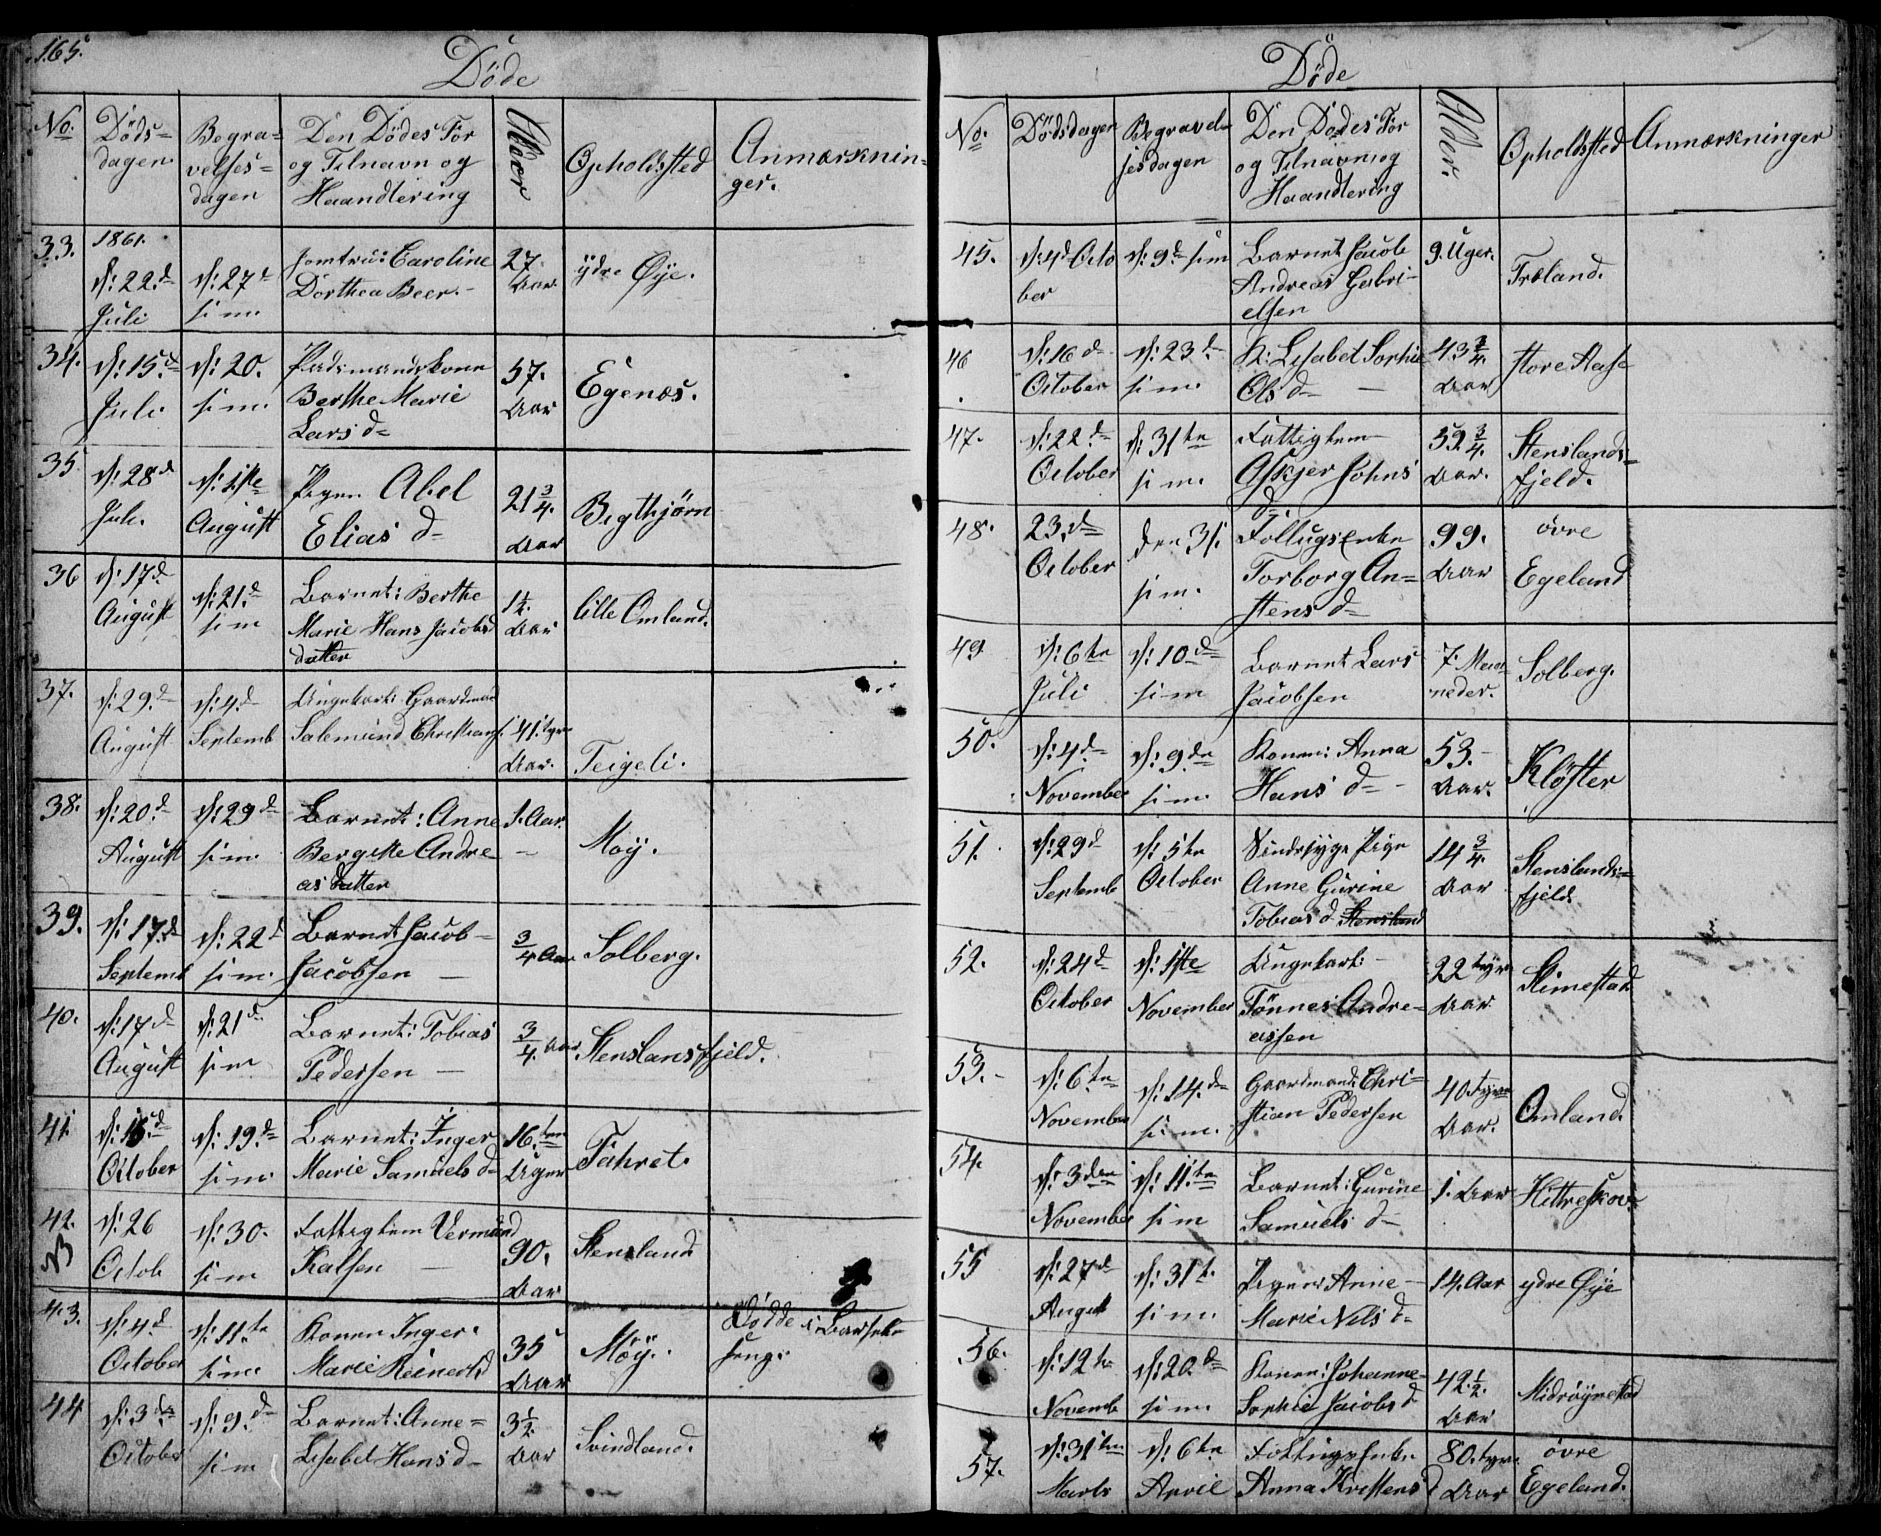 165.
Døde
No. Døds-
dagen Begra-
velses-
dagen Den Dødes For
og Tilnavn og
Haandtering Alder Opholdssted Anmærknin-
ger.
33. 1861.
d: 22d
Juli d: 27d
s: m. Jomfru: Caroline
Dorthea Beer. 27
Aar ydre Øye.
34. d: 15d
Juli d: 20.
s: m. Madsmands kone
Berthe Marie
Lars d- 57.
Aar Egenæs.
35 d: 28d
Juli d: 1ste
August Pigen Abel
Elias d- 21 3/4.
Aar Bigthjørn
36 d: 17d
August d: 21d
s: m Barnet: Berthe
Marie Hans Jacobs
datter 1 1/2.
Aar lille Omland.
37. d: 29d
August d: 4d
Septemb Ungekarl: Gaardmand
Salemund Christians. 41 tyve
Aar. Teigeli.
38. d: 20d
August d: 29d
s: m. Barnet: Anne
Bergitte Andre-
as datter 1. Aar.
- Moÿ.
39. d: 17d
Septemb d: 22d
s: m. Barnet Jacob
Jacobsen - 3/4 Aar Solberg.
40. d: 17d
August d: 21d
s: m Barnet: Tobias
Pedersen - 3/4. Aar Stenslansfjeld.
41 d: 15d
October d: 19d
s: m Barnet: Inger
Marie Samuels d- 16. ten
Uger Fahret.
42.
NB d: 26
Octob d: 30.
s: m Fattiglem Vermund
Kalsen - 90.
Aar Stensland
43. d: 4d
October d: 11te
s: m. Konen Inger
Marie Reinerts d 35
Aar Møÿ. Dødde i Barsel-
seng.
44 d: 3die
October d: 9d
s: m Barnet: Anne-
Lisabet Hans d- 3 1/2.
Aar Svindland.
Døde
No. Dødsdagen Begravel-
sesdagen Den Dødes For
og Tilnavn og
Haandtering Alder. Opholdssted Anmærkninger
45. d: 4d Octo
ber d: 9d s: m Barnet Jacob
Andreas Gabri-
elsen 9. Uger. Træland.
46 d: 16d
October d: 23d
s: m. K: Lisabet Sophie
Ols d- - 43 3/4.
Aar store Aase
47. d: 22d
October d: 31te
s: m. Fattiglem
Askjer Johns
d- 59 3/4.
Aar. Stenslands-
fjeld.
48. 23.d
October den 31.
s: m. Follugs Enke
Torborg An-
stens d- 99.
Aar øvre
Egeland
49 d: 6te
Juli d: 10d
s: m Barnet Lars
Jacobsen 7. Maa-
neder. Solberg.
50. d: 4d
November d: 9de
s: m. Konen: Anna
Hans d- 53.
Aar. Kløster
51. d: 29d
Septemb d: 5te
October Sindssyge Pige
Anne Gurine
Tobias d Stensland 14 3/4.
Aar Stenslands-
fjeld
52. d: 24d
October d: 1ste
November Ungekarl:
Tønnes Andre-
assen 22 tyve
Aar Stimestad
53. d: 6te
November d: 14de
s: m. Gaardmand: Chri-
stian Pedersen 40. tyve
Aar. Omland.
54. d: 3den
November d: 11.te
s: m Barnet: Gurine
Samuels d- 1. Aar Hittreskov
55 d: 27d
August d: 31t.
s: m. Pigen: Anne
Marie Nils d- 14. Aar ydre Øÿe
56. d: 12te
Novemb d: 20d
s: m. Konen: Johanne
Sophie Jacobs d 42 1/2.
Aar Midrøÿnestad
57. d: 31te
Marts d: 6te
April Fattigs Enke
Anna Kristens d 80. tyve
Aar øvre
Egeland.